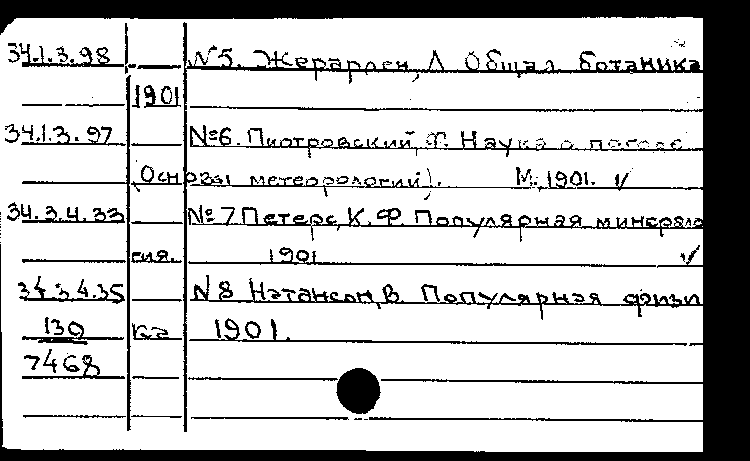 34.1.3.98 №5. Жерарден, Л Общал ботаника
1901
34.1.3.97 №6. Пиотровский, Ф. Наука о погоде
(Основы метеорологии). М, 1901. √
34.3.4.33 №7 Петерс, К. Ф. Популярная минерало
гия. 1901 √
34.3.4.35 №8 Натансон, В Популярная физи
130 ка 1901.
7468